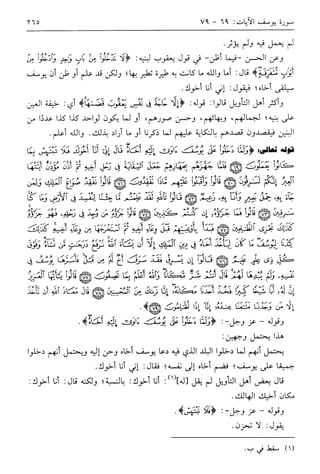 سورة يوسف الآيات: ٦٩ - ٧٩ ٢٦٥
لم يعمل فيه ولم يؤثر.
وعن الحسن -فيما أظن- في قول يعقوب لبنيه: ﴿لَا تَدْخُلُوا مِنْ بَابٍ وَاحِدٍ وَادْخُلُوا مِنْ
أَبْوَابٍ مُتَفَرِّقَةٍ﴾ قال: أما والله ما كانت به طيرة تطير بها؛ ولكن قد علم أو ظن أن يوسف
سيلقى أخاه؛ فيقول: إني أنا أخوك.
وأكثر أهل التأويل قالوا: قوله: ﴿إِلَّا حَاجَةً فِي نَفْسِ يَعْقُوبَ قَضَاهَا﴾ أي: خيفة العين
على بنيه؛ لجمالهم، وبهائهم، وحسن صورهم، أو لما يكون لواحد كذا كذا عددًا من
البنين فيقصدون قصدهم بالنكاية عليهم لما ذكرنا أو ما أراد بذلك. والله أعلم.
قوله تعالى: ﴿وَلَمَّا دَخَلُوا عَلَى يُوسُفَ آوَى إِلَيْهِ أَخَاهُ قَالَ إِنِّي أَنَا أَخُوكَ فَلَا تَبْتَئِسْ بِمَا
كَانُوا يَعْمَلُونَ ﴿٦٩﴾ فَلَمَّا جَهَّزَهُمْ بِجَهَازِهِمْ جَعَلَ السِّقَايَةَ فِي رَحْلِ أَخِيهِ ثُمَّ أَذَّنَ مُؤَذِّنٌ أَيَّتُهَا
الْعِيرُ إِنَّكُمْ لَسَارِقُونَ ﴿٧٠﴾ قَالُوا وَأَقْبَلُوا عَلَيْهِمْ مَاذَا تَفْقِدُونَ ﴿٧١﴾ قَالُوا نَفْقِدُ صُوَاعَ الْمَلِكِ وَلِمَنْ
جَاءَ بِهِ حِمْلُ بَعِيرٍ وَأَنَا بِهِ زَعِيمٌ ﴿٧٢﴾ قَالُوا تَاللَّهِ لَقَدْ عَلِمْتُمْ مَا جِئْنَا لِنُفْسِدَ فِي الْأَرْضِ وَمَا كُنَّا
سَارِقِينَ ﴿٧٣﴾ قَالُوا فَمَا جَزَاؤُهُ إِنْ كُنْتُمْ كَاذِبِينَ ﴿٧٤﴾ قَالُوا جَزَاؤُهُ مَنْ وُجِدَ فِي رَحْلِهِ فَهُوَ جَزَاؤُهُ
كَذَلِكَ نَجْزِي الظَّالِمِينَ ﴿٧٥﴾ فَبَدَأَ بِأَوْعِيَتِهِمْ قَبْلَ وِعَاءِ أَخِيهِ ثُمَّ اسْتَخْرَجَهَا مِنْ وِعَاءِ أَخِيهِ
كَذَلِكَ كِدْنَا لِيُوسُفَ مَا كَانَ لِيَأْخُذَ أَخَاهُ فِي دِينِ الْمَلِكِ إِلَّا أَنْ يَشَاءَ اللَّهُ نَرْفَعُ دَرَجَاتٍ مَنْ نَشَاءُ وَفَوْقَ
كُلِّ ذِي عِلْمٍ عَلِيمٌ ﴿٧٦﴾ قَالُوا إِنْ يَسْرِقْ فَقَدْ سَرَقَ أَخٌ لَهُ مِنْ قَبْلُ فَأَسَرَّهَا يُوسُفُ فِي
نَفْسِهِ وَلَمْ يُبْدِهَا لَهُمْ قَالَ أَنْتُمْ شَرٌّ مَكَانًا وَاللَّهُ أَعْلَمُ بِمَا تَصِفُونَ ﴿٧٧﴾ قَالُوا يَا أَيُّهَا الْعَزِيزُ
إِنَّ لَهُ أَبًا شَيْخًا كَبِيرًا فَخُذْ أَحَدَنَا مَكَانَهُ إِنَّا نَرَاكَ مِنَ الْمُحْسِنِينَ ﴿٧٨﴾ قَالَ مَعَاذَ اللَّهِ أَنْ نَأْخُذَ
إِلَّا مَنْ وَجَدْنَا مَتَاعَنَا عِنْدَهُ إِنَّا إِذًا لَظَالِمُونَ ﴿٧٩﴾﴾.
وقوله - عز وجل-: ﴿وَلَمَّا دَخَلُوا عَلَى يُوسُفَ آوَى إِلَيْهِ أَخَاهُ﴾.
هذا يحتمل وجهين:
يحتمل أنهم لما دخلوا البلد الذي فيه يوسف دعا يوسف أخاه وحن إليه ويحتمل أنهم دخلوا
جميعًا على يوسف؛ فضم أخاه إلى نفسه؛ فقال: إني أنا أخوك.
قال بعض أهل التأويل لم يقل [له](١): أنا أخوك: بالنسبة؛ ولكنه قال: أنا أخوك:
مكان أخيك الهالك.
وقوله - عز وجل-: ﴿فَلَا تَبْتَئِسْ﴾.
يقول: لا تحزن.
(١) سقط في ب.